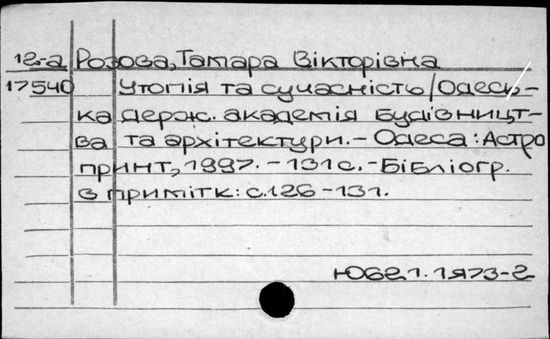 12-а Розова, Тамара Вікторівна
17540 Утопія та сучасність / Одесь-
ка держ. академія будівницт-
ва та архітектури. – Одеса : Астро
принт, 1997. – 131 с. – Бібліогр.
в примітк: с. 126-131.
Ю6е2.1.1я73-2